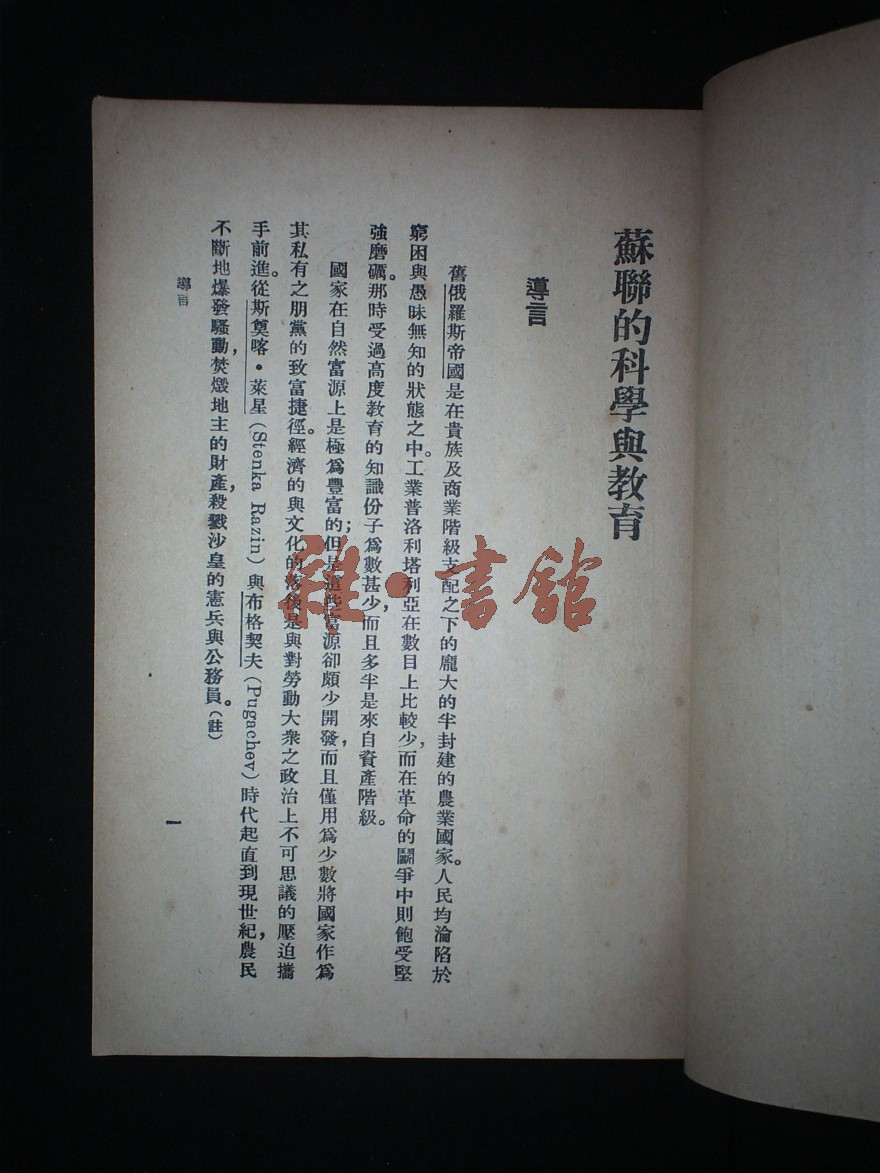 蘇聯的科學與教育
導言
舊俄羅斯帝國是在貴族及商業階級支配之下的龐大的半封建的農業國家。人民均淪陷於
窮困與愚昧無知的狀態之中。工業普洛利塔利亞在數目上比較少，而在革命的鬭爭中則飽受堅
強磨礪。那時受過高度教育的知識份子爲數甚少，而且多半是來自資產階級。
國家在自然富源上是極爲豐富的；但是這些富源卻頗少開發，而且僅用爲少數將國家作爲
其私有之朋黨的致富捷徑。經濟的與文化的落後是與對勞動大衆之政治上不可思議的壓迫攜
手前進。從斯奠喀•萊星（Stenka Razin）與布格契夫（Pugachev）時代起直到現世紀，農民
不斷地爆發騷動，焚燬地主的財產，殺戮沙皇的憲兵與公務員。（註）
導言
一
雜•書館